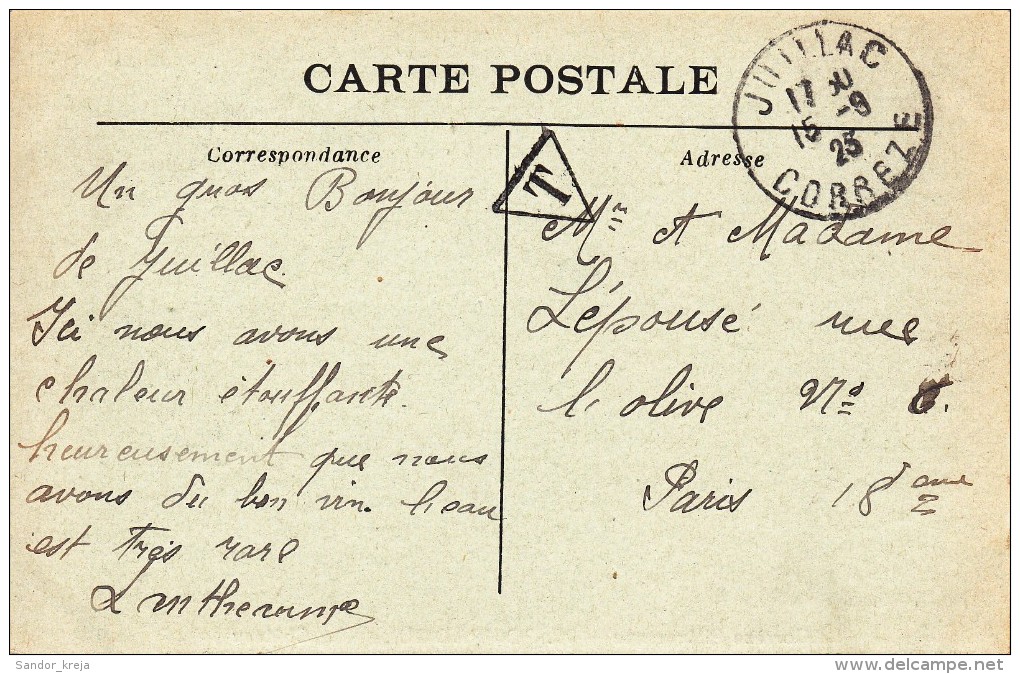 CARTE POSTALE
JUILLAC
17 30
15 -9
23
CORREZE
Correspondance
Un gros Bonjour
de Juillac.
Ici nous avons une
chaleur étouffante.
heureusement que nous
avons du bon vin. leau
est très rare
T
Adresse
Mr et Madame
Lépousé rue
l'olive No 6.
Paris 18eme
Sandor_kreja
www.delcampe.net